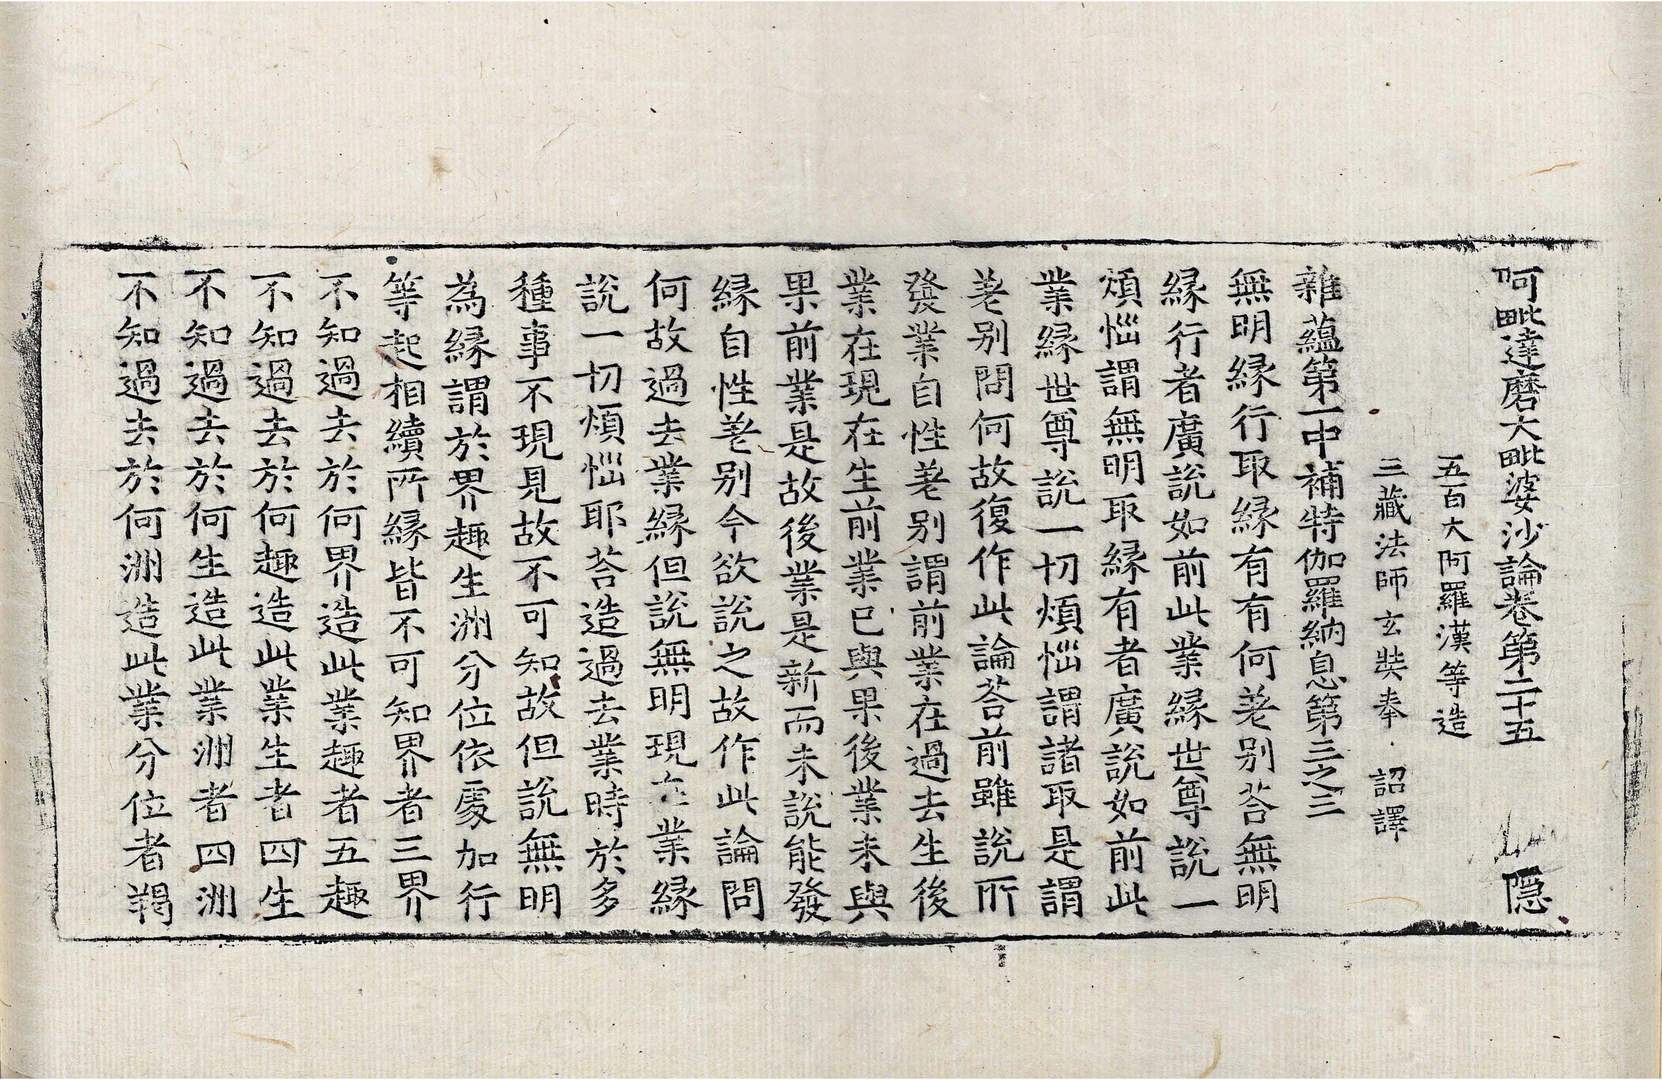 阿毗達磨大毗婆沙論卷第二十五　隱
五百大阿羅漢等造
三藏法師玄奘奉　詔譯
雜蘊第一中補特伽羅納息第三之三
無明緣行取緣有有何差別荅無明
緣行者廣說如前此業緣世尊說一
煩惱謂無明取緣有者廣說如前此
業緣世尊說一切煩惱謂諸取是謂
差別問何故復作此論荅前雖說所
發業自性差別謂前業在過去生後
業在現在生前業已與果後業未與
果前業是故後業是新而未說能發
緣自性差別今欲說之故作此論問
何故過去業緣但說無明現在業緣
說一切煩惱耶荅造過去業時於多
種事不現見故不可知故但說無明
為緣謂於界趣生洲分位依處加行
等起相續所緣皆不可知界者三界
不知過去於何界造此業趣者五趣
不知過去於何趣造此業生者四生
不知過去於何生造此業洲者四洲
不知過去於何洲造此業分位者羯